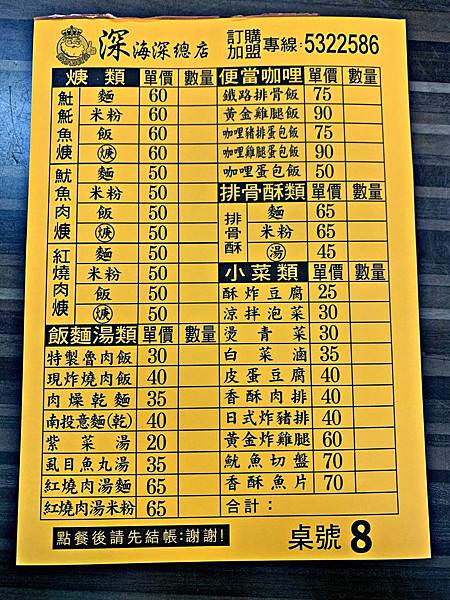 深海深總店
訂購加盟專線:5322586
焿類 單價 數量
魠魠魚焿 麵 60
米粉 60
飯 60
焿 60
魷魚肉焿 麵 50
米粉 50
飯 50
焿 50
紅燒肉焿 麵 50
米粉 50
飯 50
焿 50
飯麵湯類 單價 數量
特製魯肉飯 30
現炸燒肉飯 40
肉燥乾麵 35
南投意麵(乾) 40
紫菜湯 20
虱目魚丸湯 35
紅燒肉湯麵 65
紅燒肉湯米粉 65
便當咖哩 單價 數量
鐵路排骨飯 75
黃金雞腿飯 90
咖哩豬排蛋包飯 75
咖哩雞腿蛋包飯 90
咖哩蛋包飯 50
排骨酥類 單價 數量
排骨酥 麵 65
米粉 65
湯 45
小菜類 單價 數量
酥炸豆腐 25
涼拌泡菜 30
燙青菜 30
白菜滷 35
皮蛋豆腐 40
香酥肉排 40
日式炸豬排 40
黃金炸雞腿 60
魷魚切盤 70
香酥魚片 70
合計:
點餐後請先結帳:謝謝!
桌號 8